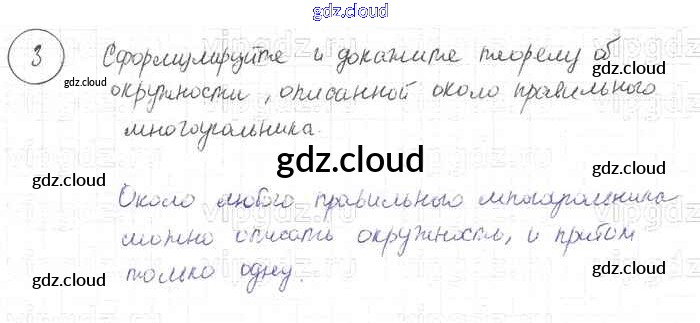 gdz.cloud
3 Сформулируйте и докажите теорему об
gdz.cloud
окружности, описанной около правильного
gdz.cloud
многоугольника.
gdz.cloud
gdz.cloud
Около любого правильного многоугольника
gdz.cloud gdz.cloud
можно описать окружность, и притом
только одну.
gdz.cloud gdz.cloud